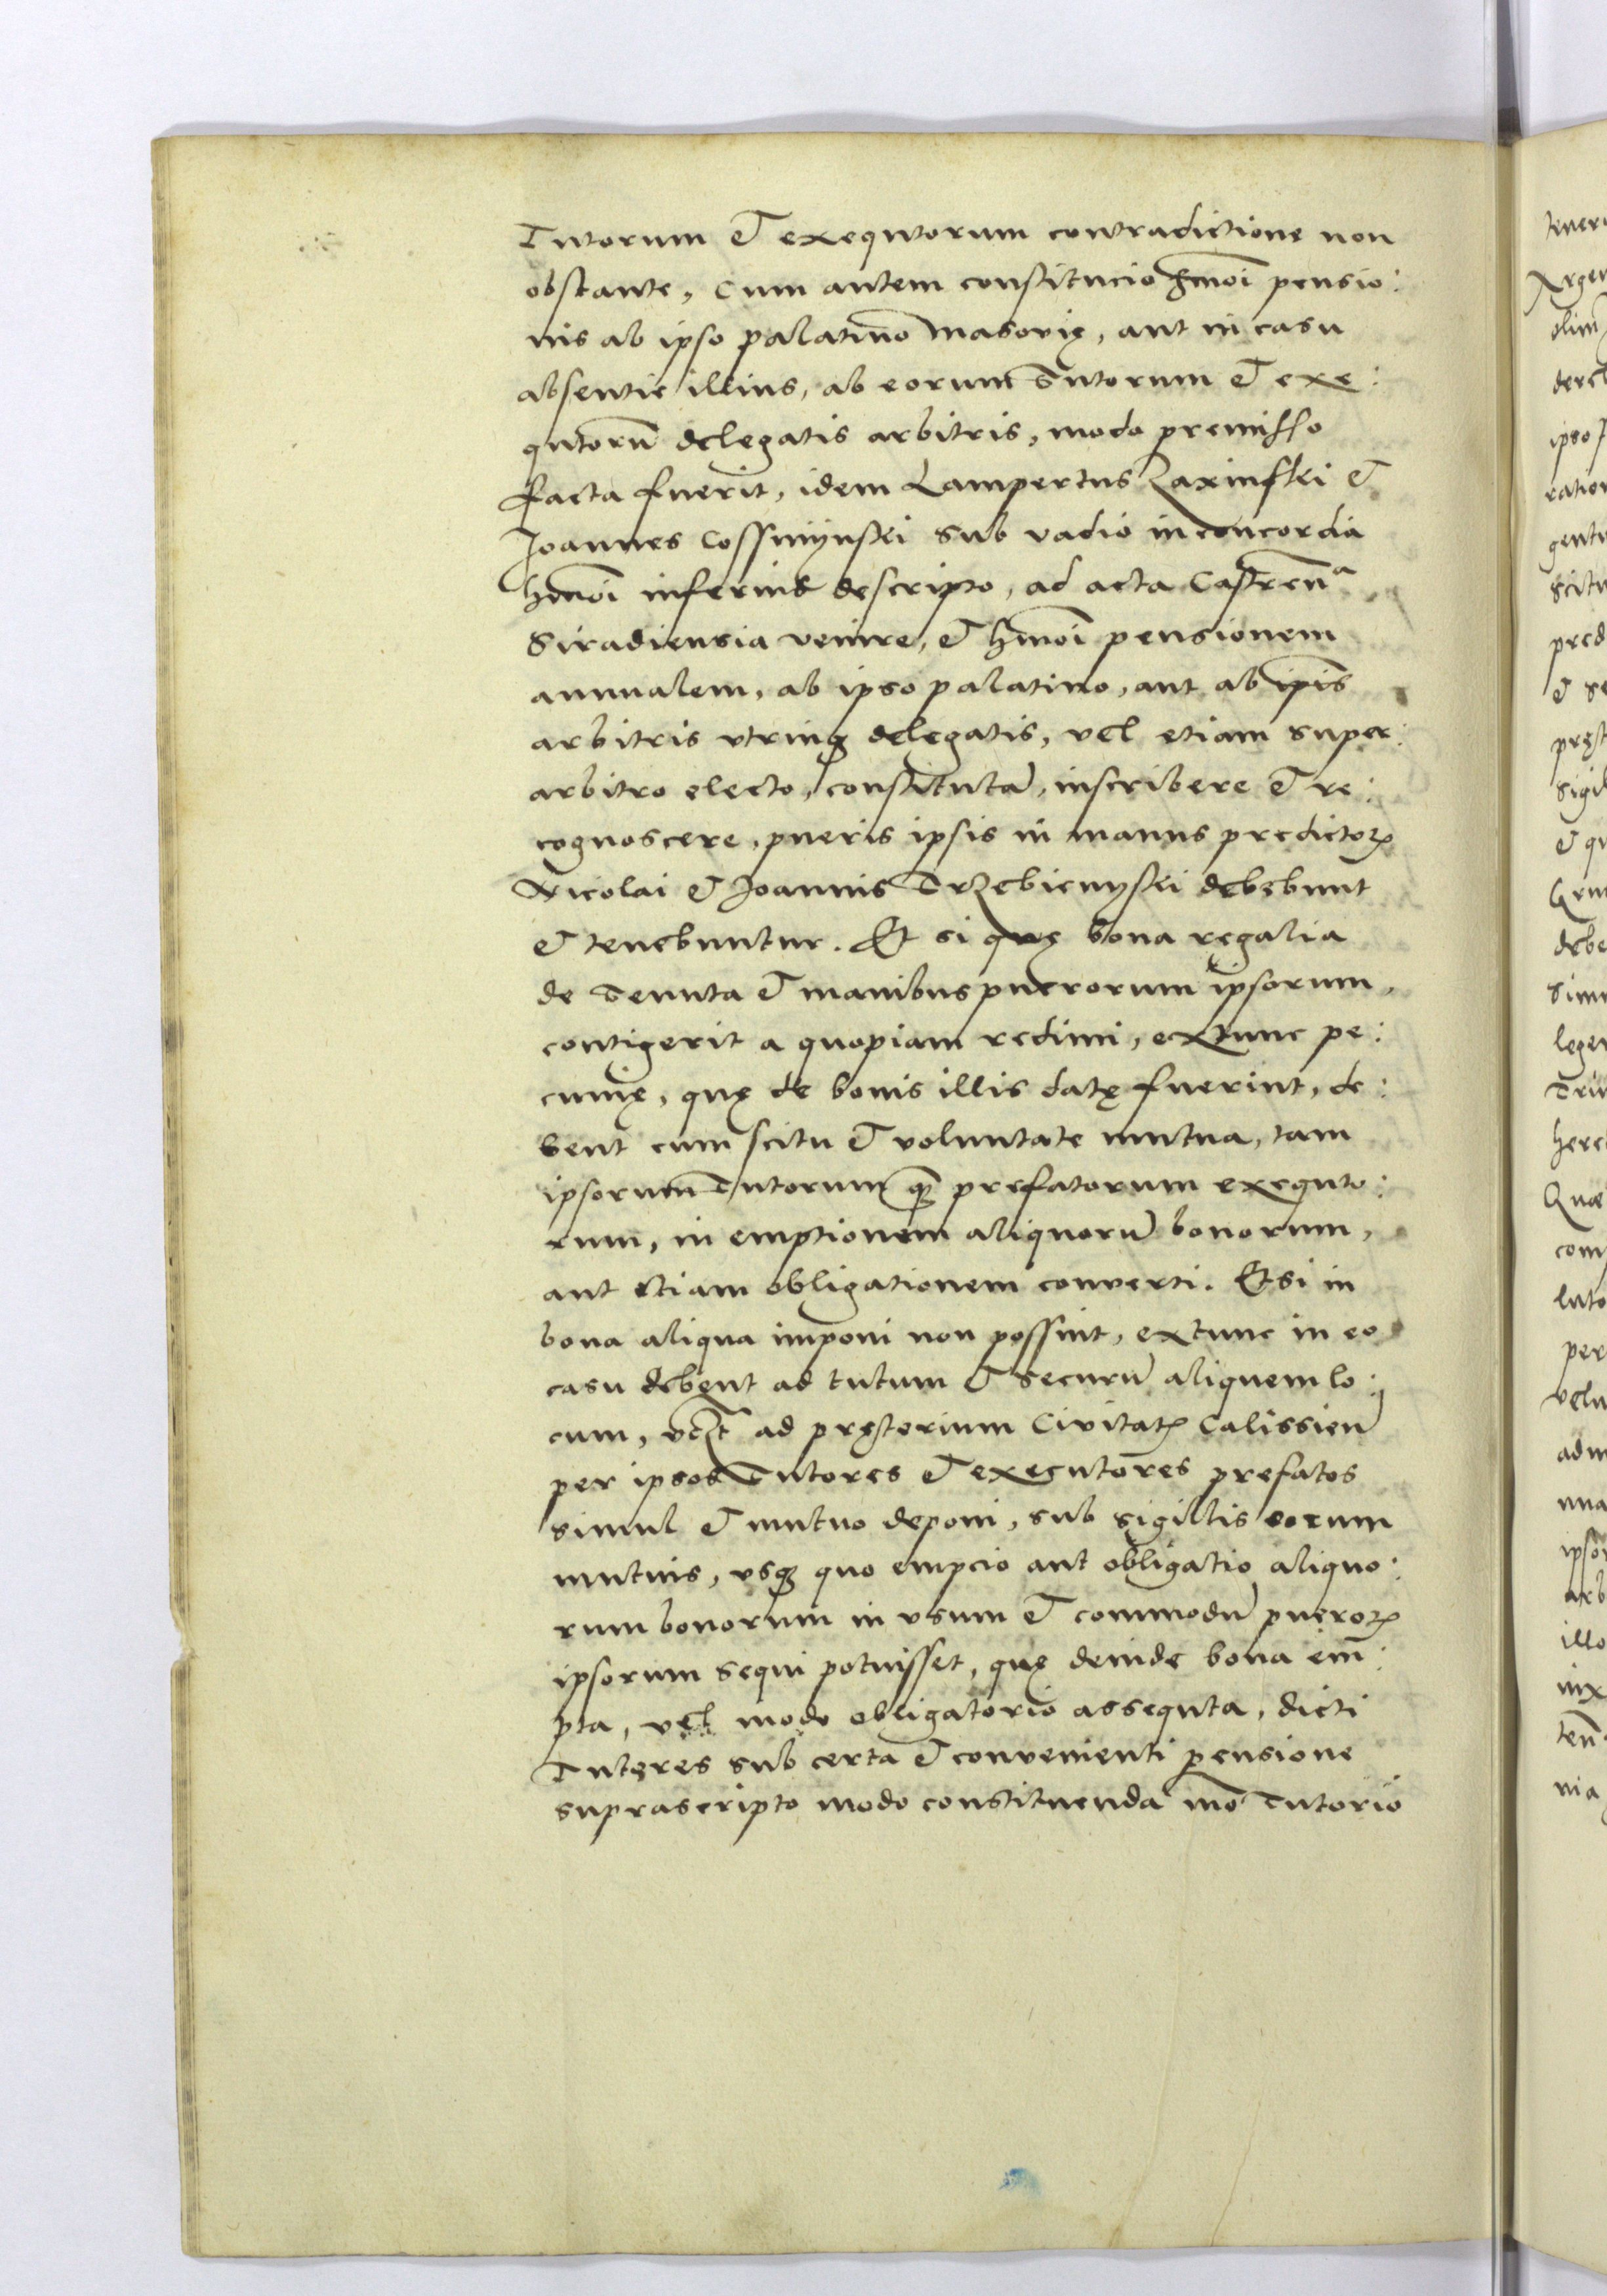 Tutorum et exequtorum contradictione non
obstante, Cum autem constitucio hmōi pensio:
nis ab ipso palatino Masovię, aut in casu
absentie illius, ab eorum Tutorum et exe:
qutorū delegatis arbitris, modo premisso
facta fuerit, idem Lampertus Zaxinski et
Joannes Cossmijnski sub vadio in concordia
hmōi inferius descripto, ad acta Castreñª
Siradiensia venire, et hmōi pensionem
annualem, ab ipso palatino, aut ab ip̄is
arbitris utrinq; delegatis, vel etiam super:
arbitro electo, constitutā, inscribere et re:
cognoscere, pueris ipsis in manus predictoꝝ
Nicolai et Joannis Trzebienyski debebunt
et tenebuntur. Et si quę bona regalia
de Tenuta et manibus puerorum ipsorum,
contigerit a quopiam redimi, extunc pe:
cunię, quę de bonis illis datę fuerint, de:
bent cum scitu et voluntate mutua, tam
ipsorum Tutorum q̄ prefatorum exequto:
rum, in emptionem aliquorū bonorum,
aut etiam obligationem converti. Et si in
bona aliqua imponi non possint, extunc in eo
casu debent ad tutum et securū aliquem lo:
cum, vt ad pręstorium Civitatꝭ Calissieñ
per ipsos Tutores et executores prefatos
simul et mutuo deponi, sub sigillis eorum
mutuis, usq; quo empcio aut obligatio aliquo:
rum bonorum in usum et commodū pueroꝝ
ipsorum sequi potuisset, quę deinde bona em̄:
pta, vel modo obligatorio assequta, dicti
Tutores sub certa et convenienti pensione
suprascripto modo constituenda mō Tutorio
tener
Argen
olim
ipso
ration
scitu
et se
Sigil
et qu
debe
simu
legen
here
com
luto
per
velu
adm
una
ipsor
arb
illo